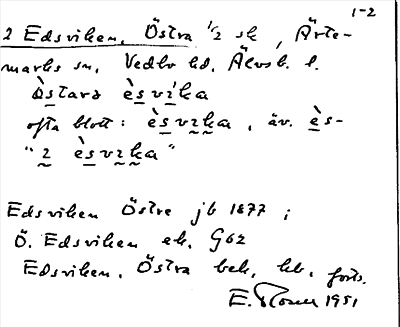 1-2
2 Edsviken, Östra 1/2 sk, Ärte-
marks sn, Vedbo hd, Älvsb. l.
òstarə èsvika
ofta blott: èsvika, äv. ès-
"i èsvika"
Edsviken Östre jb 1877;
Ö. Edsviken ek. G62
Edsviken, Östra bek. kb. forts.
E. 1951